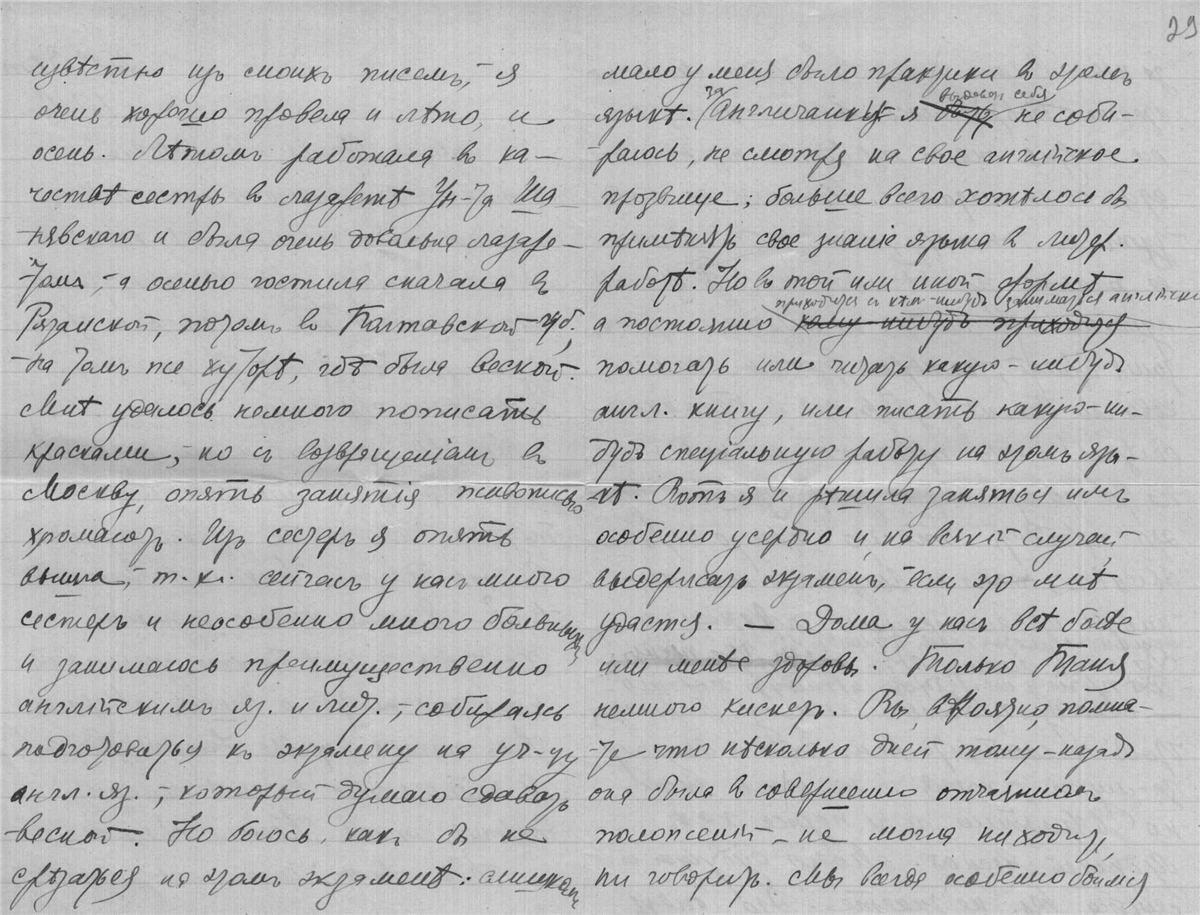 29
извѣстно изъ моихъ писемъ, – я
очень хорошо провела и лѣто, и
осень. Лѣтомъ работала въ ка-
чествѣ сестры въ лазаретѣ Ун-та Ша-
нявскаго и была очень довольна лазаре-
томъ, – а осенью гостила сначала въ
Рязанской, потомъ въ Полтавской губ.,
на томъ же хуторѣ, гдѣ была весной.
Мнѣ удалось немного пописать
красками, – но съ возвращеніемъ въ
Москву, опять занятія живописью
хромаютъ. Изъ сестеръ я опять
вышла, – т. к. сейчасъ у насъ много
сестеръ и неособенно много больныхъ,
и занимаюсь преимущественно
англійскимъ яз. и лит. – собираясь
подготовиться къ экзамену на уч-цу
англ. яз. – который думаю сдавать
весной. Но боюсь, какъ бы не
срѣзаться на этомъ экзаменѣ:
мало у меня было практики въ этомъ
языкѣ. За Англичанку я выдавать себя не соби-
раюсь, не смотря на свое англійское
прозвище; больше всего хотѣлось бы
примѣнить свое знаніе языка въ литер.
работѣ. Но въ той или иной формѣ
приходится съ кѣмъ-нибудь заниматься англійски
а постоянно кому нибудь приходится
помогать или читать какую-нибудь
англ. книгу, или писать какую-ни-
будь спеціальную работу на этомъ язы-
кѣ. Вотъ я и рѣшила заняться имъ
особенно усердно и, на всякій случай
выдержать экзаменъ, – если это мнѣ
удастся. — Дома у насъ всѣ болѣе
или менѣе здоровы. Только Таня
немного киснетъ. Вы, вѣроятно, помни-
те что нѣсколько дней тому-назадъ
она была въ совершенно отчаянномъ
положеніи – не могла ни ходить,
ни говорить. Мы всегда особенно боимся